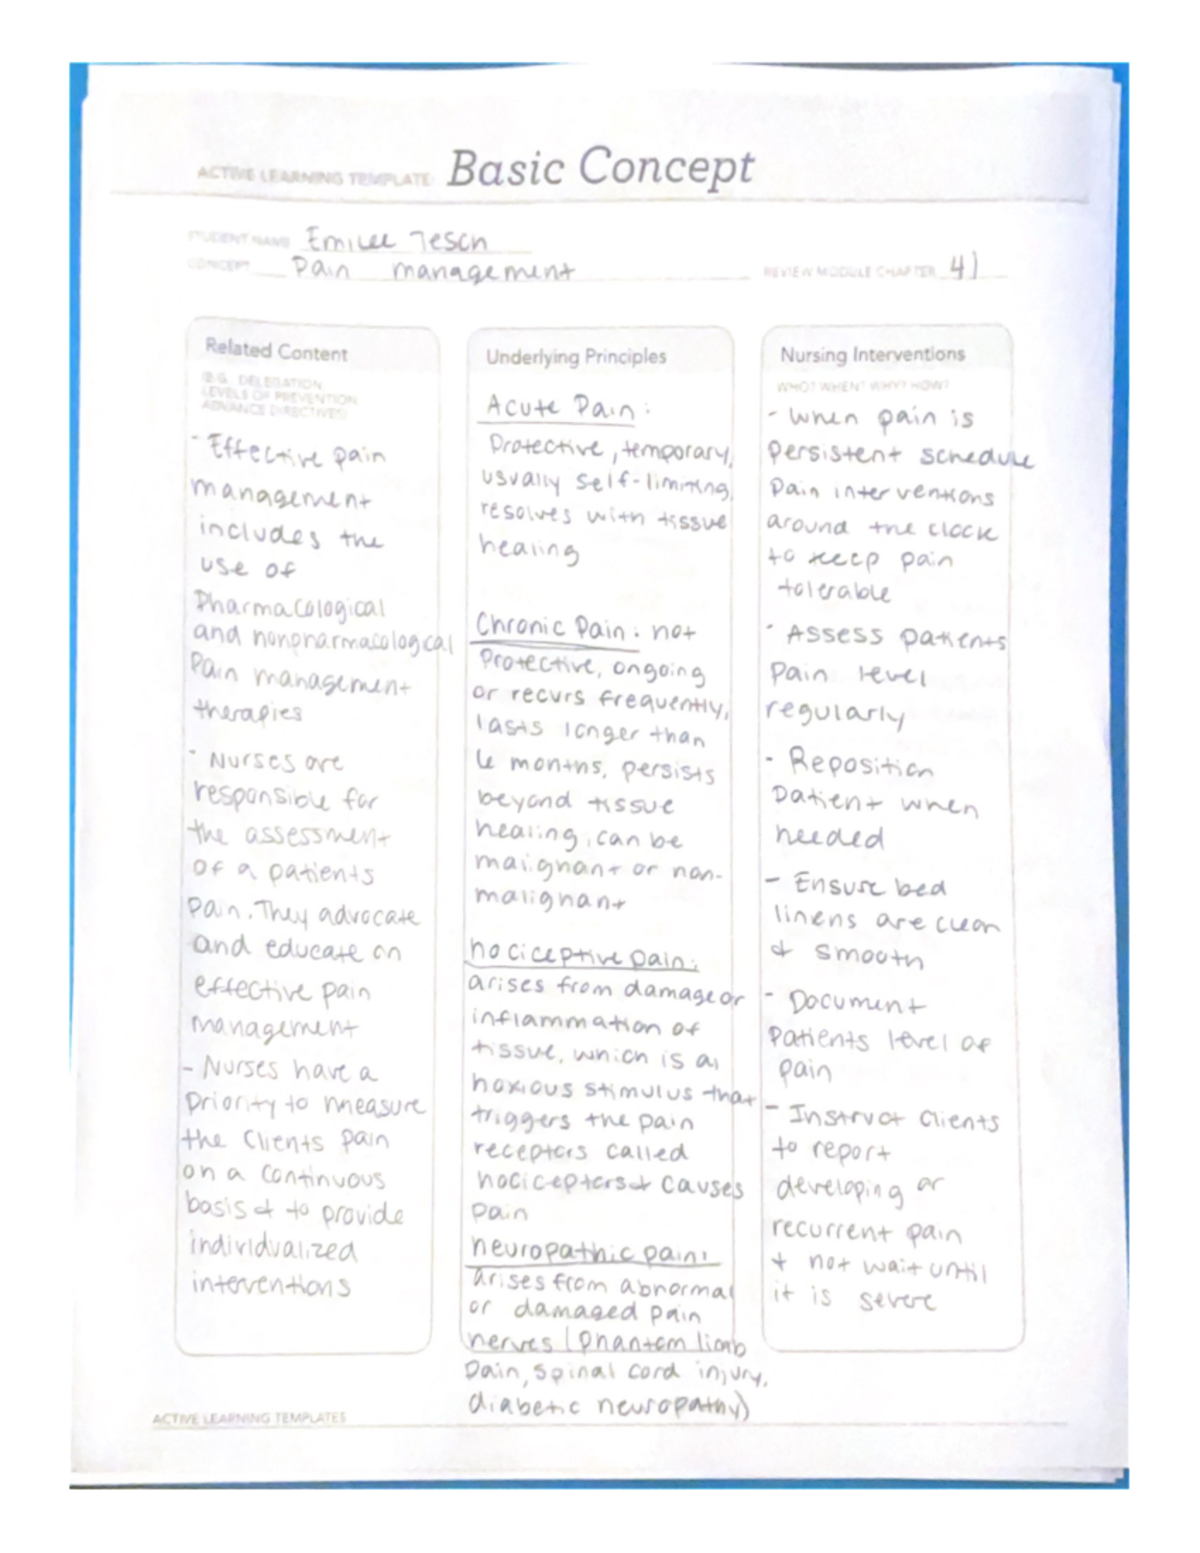 ACTIVE LEARNING TEMPLATE: Basic Concept
STUDENT NAME Emilee Tesch
CONCEPT Pain management REVIEW MODULE CHAPTER 41
Related Content
(E.G., DELEGATION,
LEVELS OF PREVENTION,
ADVANCE DIRECTIVES)
- Effective pain
management
includes the
use of
Pharmacological
and nonpharmacological
Pain management
therapies
- Nurses are
responsible for
the assessment
of a patients
pain. They advocate
and educate on
effective pain
management
- Nurses have a
priority to measure
the clients pain
on a continuous
basis & to provide
individualized
interventions
Underlying Principles
Acute Pain:
Protective, temporary,
usually self-limiting,
resolves with tissue
healing
Chronic Pain: not
Protective, ongoing
or recurs frequently,
lasts longer than
6 months, persists
beyond tissue
healing, can be
malignant or non-
malignant
nociceptive pain:
arises from damage or
inflammation of
tissue, which is a
noxious stimulus that
triggers the pain
receptors called
nociceptors & causes
pain
neuropathic pain:
arises from abnormal
or damaged pain
nerves (phantom limb
pain, spinal cord injury,
diabetic neuropathy)
Nursing Interventions
WHO? WHEN? WHY? HOW?
- When pain is
persistent schedule
pain interventions
around the clock
to keep pain
tolerable
- Assess patients
pain level
regularly
- Reposition
patient when
needed
- Ensure bed
linens are clean
& smooth
- Document
patients level of
pain
- Instruct clients
to report
developing or
recurrent pain
& not wait until
it is severe
ACTIVE LEARNING TEMPLATES